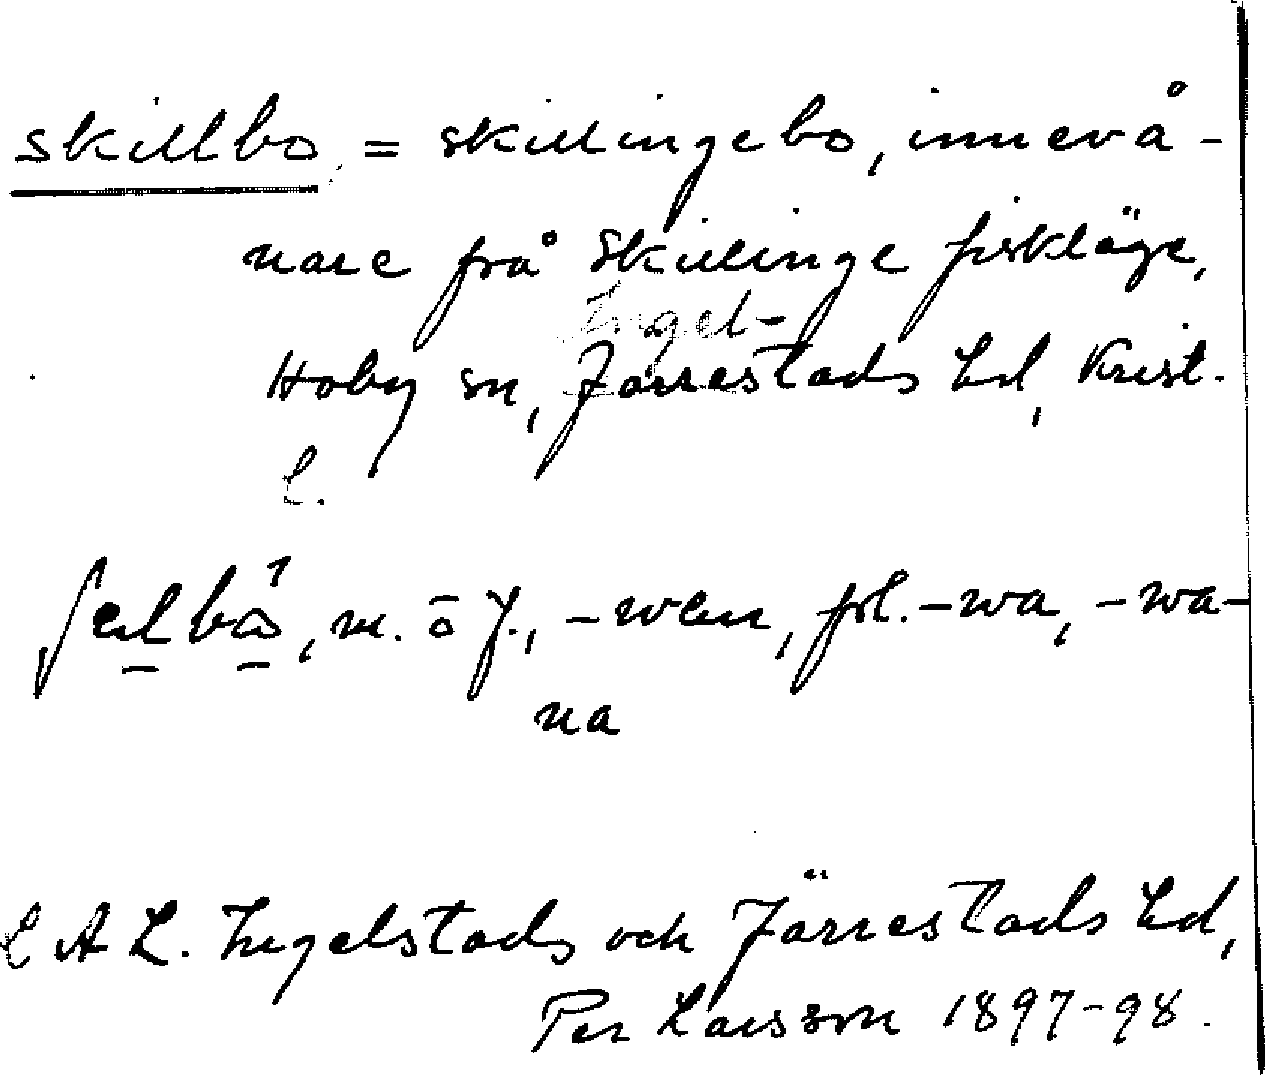 skillbo = skillingebo, innevå-
nare från Skillinge fiskläge,
Ingel-
Hoby sn, Järrestads hd, Krist.
l.
m. ō f., -wen, pl. -wa, -wa-
na
L. Ingelstads och Järrestads hd,
Per Larsson 1897-98.